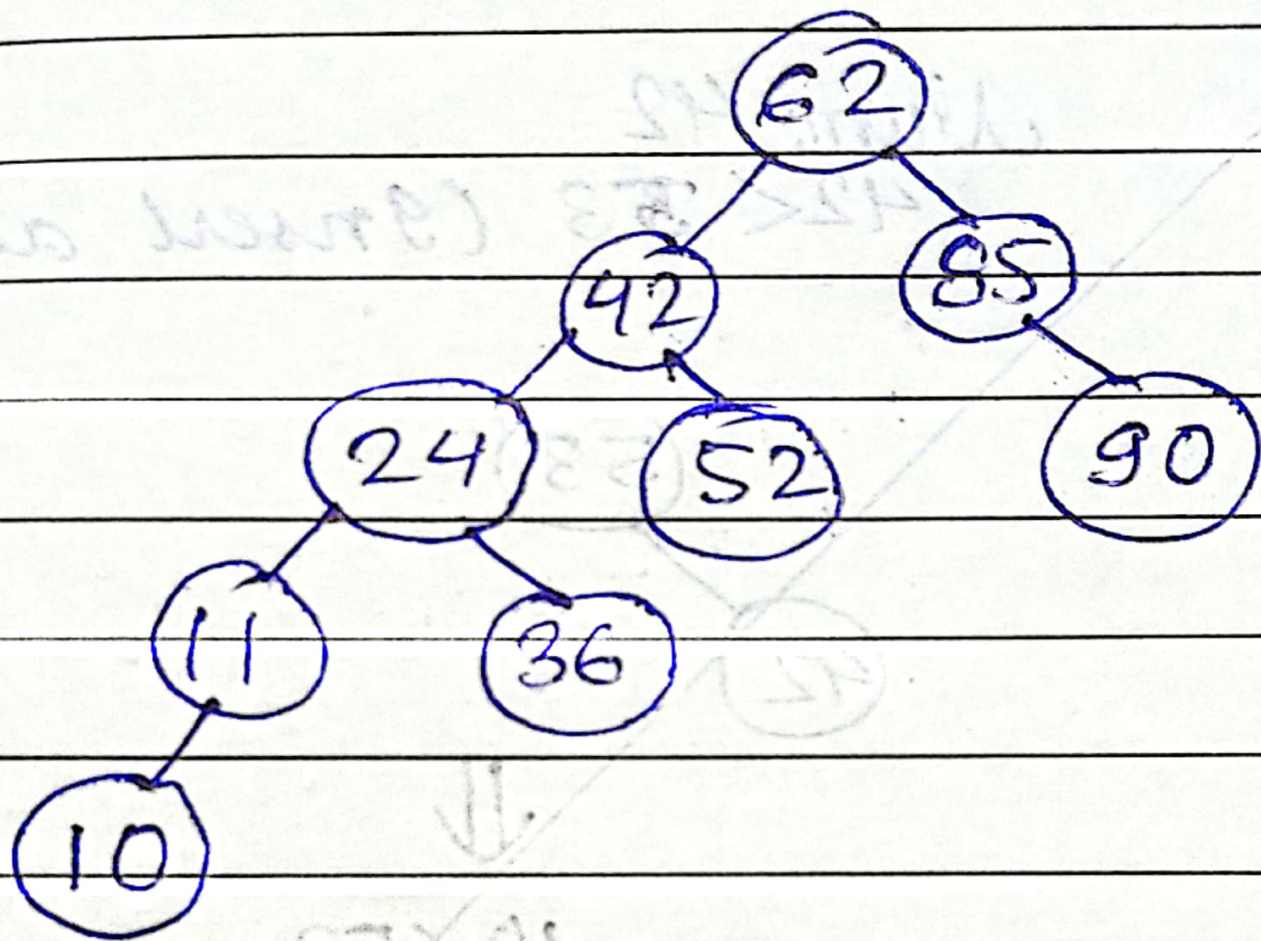 62
42 85
24 52 90
11 36
10